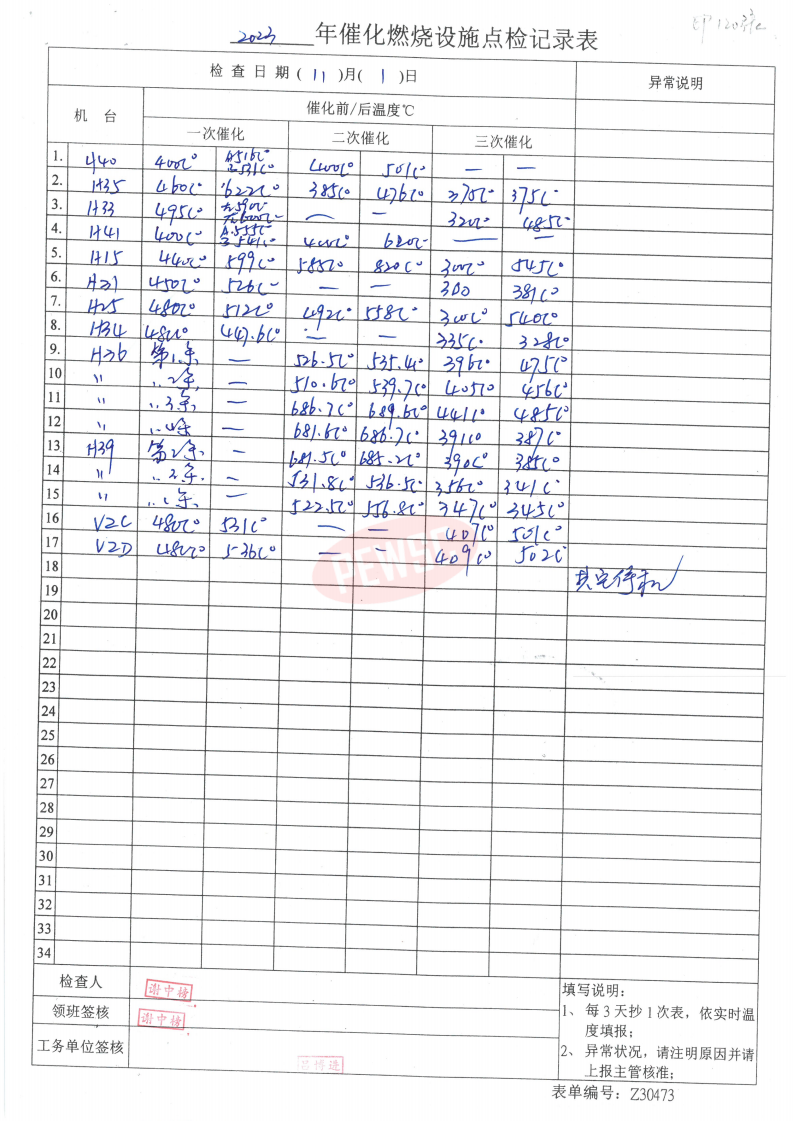 2023 年催化燃烧设施点检记录表
检查日期(11)月(1)日 异常说明
机 台 催化前/后温度℃
一次催化 二次催化 三次催化
1. H40 400C° 左516C° 右531C° 400C° 501C° — —
2. H35 460C° 622C° 385C° 476C° 370C° 375C°
3. H33 495C° — — 320C° 485C°
4. H41 400C° 左555C° 右541C° 400C° 620C° — —
5. H15 440C° 599C° 585C° 820C° 300C° 545C°
6. H21 450C° 526C° — — 300 381C°
7. H25 480C° 512C° 492C° 558C° 300C° 540C°
8. H34 480C° 447.6C° — — 335C° 328C°
9. H26 第1条 — 526.5C° 535.4C° 396C° 475C°
10 〃 〃2条 — 510.6C° 539.7C° 405C° 456C°
11 〃 〃3条 — 686.7C° 689.6C° 441C° 485C°
12 〃 〃4条 — 681.6C° 686.7C° 391C° 387C°
13 H39 第2条 — 681.5C° 685.2C° 390C° 385C°
14 〃 〃2条 — 531.8C° 536.5C° 356C° 341C°
15 〃 〃1条 — 522.5C° 556.8C° 347C° 345C°
16 V2C 480C° 531C° — — 407C° 501C°
17 V2D 480C° 536C° — — 409C° 502C°
18 其它停机
19
20
21
22
23
24
25
26
27
28
29
30
31
32
33
34
PEWSC
检查人 谢中榜
领班签核 谢中榜
工务单位签核
填写说明:
1、每3天抄1次表，依实时温
度填报;
2、异常状况，请注明原因并请
上报主管核准;
表单编号: Z30473